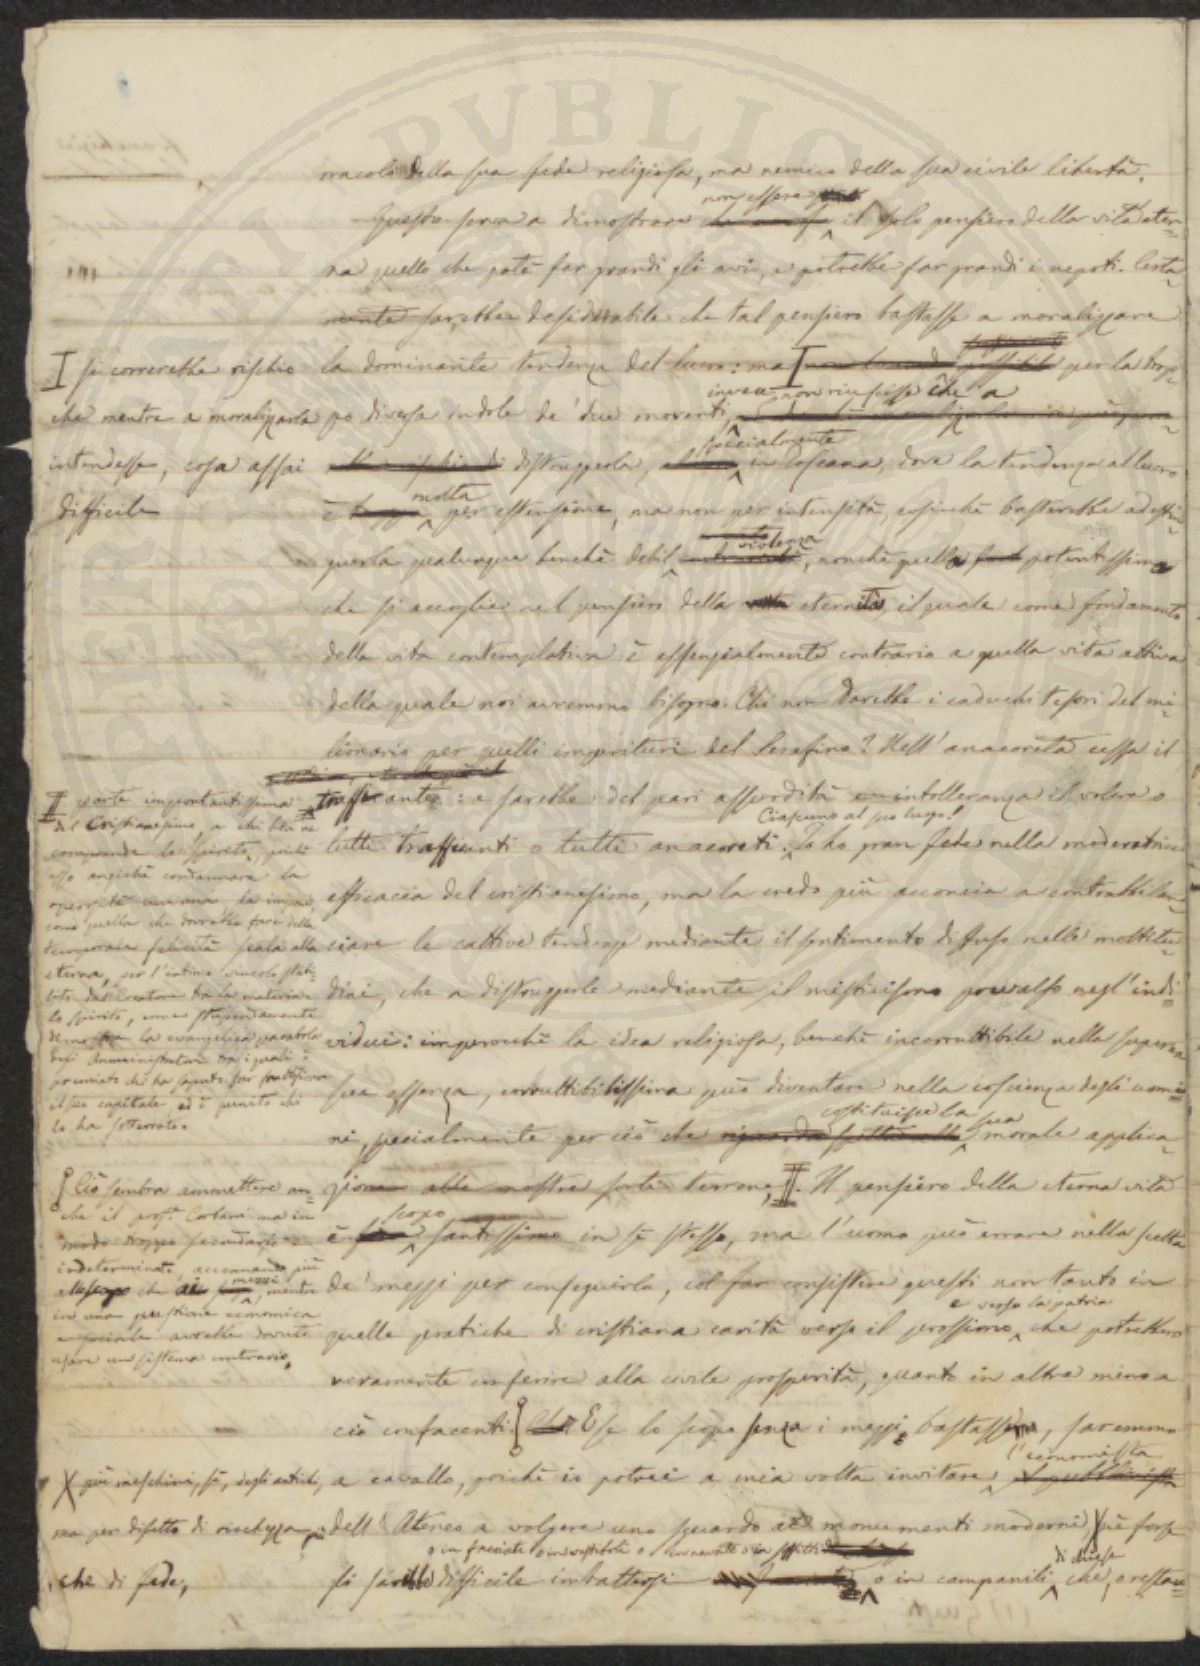 oracolo della sua fede religiosa, ma nemico della sua civile libertà.
non essere
Questo prova a dimostrare il solo pensiero della vita eter-
na quello che potè far grandi gli avi, e potrebbe far grandi i nepoti. Certa
mente sarebbe desiderabile che tal pensiero bastasse a moralizzare
la dominante tendenza del lucro: ma per la trop-
invece non riuscisse che a
po diversa indole de' due moventi,
specialmente
distruggerla, in Toscana, dove la tendenza al lucro
molta
è per estensione, ma non per intensità, cosinchè basterebbe ad estin-
violenza
guerla qualunque benchè debil , nonchè quella potentissima
che si accoglie nel pensiero della eternità, il quale come fondamento
della vita contemplativa è essenzialmente contrario a quella vita attiva
della quale noi avremmo bisogno. Chi non darebbe i caduchi tesori del mi-
lionario per quelli imperituri del Serafino? Nell'anacoreta cessa il
trafficante: e sarebbe del pari assurdità intolleranza il volere o
Ciascuno al suo luogo!
tutti trafficanti o tutti anacoreti. Io ho gran fede nella moderatrice
efficacia del cristianesimo, ma la credo più acconcia a contrabbilan-
ciare le cattive tendenze mediante il sentimento diffuso nelle moltitu-
dini, che a distruggerle mediante il misticismo prevalso negl'indi-
vidui: imperocchè la idea religiosa, benchè incorruttibile nella superna
sua essenza, corruttibilissima può diventare nella coscienza degli uomi-
costituisce la sua
ni, specialmente per ciò che morale applica-
zione alle nostre sorti terrene, II. Il pensiero della eterna vita
scopo
è santissimo in sè stesso, ma l'uomo può errare nella scelta
de' mezzi per conseguirlo, col far consistere questi non tanto in
e verso la patria
quelle pratiche di cristiana carità verso il prossimo, che potrebbero
veramente conferire alla civile prosperità, quanto in altre meno a
ciò confacenti. E se lo scopo senza i mezzi bastasse, saremmo
l'economista
a cavallo, poichè io potrei a mia volta invitare
dell'Ateneo a volgere uno sguardo ai monumenti moderni X nè forse
o in facciate o in vestiboli o
di chiese
si sarebbe difficile imbattersi o in campanili che, o restau-
I si correrebbe rischio
che mentre a moralizzarla
intendesse, cosa assai
difficile
II parte importantissima
del Cristianesimo, a chi ben ne
comprende lo spirito, poichè
esso anzichè condannare la
operosità umana la impone,
come quella che dovrebbe farsi della
temporale felicità scala alla
eterna, per l'intimo vincolo stabi-
lito dal Creatore tra la materia e
lo spirito, come stupendamente
dimostra la evangelica parabola
degli Amministratori tra i quali è
premiato chi ha saputo far fruttificare
il suo capitale ed è punito chi
lo ha sotterrato.
Ciò sembra ammettere an-
che il prof.e Corbani ma in
modo troppo secondario e
indeterminato, accennando più
allo scopo che ai mezzi, mentre
in una questione economica
e sociale avrebbe dovuto
usare un sistema contrario.
X più meschini, sì, degli antichi,
ma per difetto di ricchezza,
che di fede,